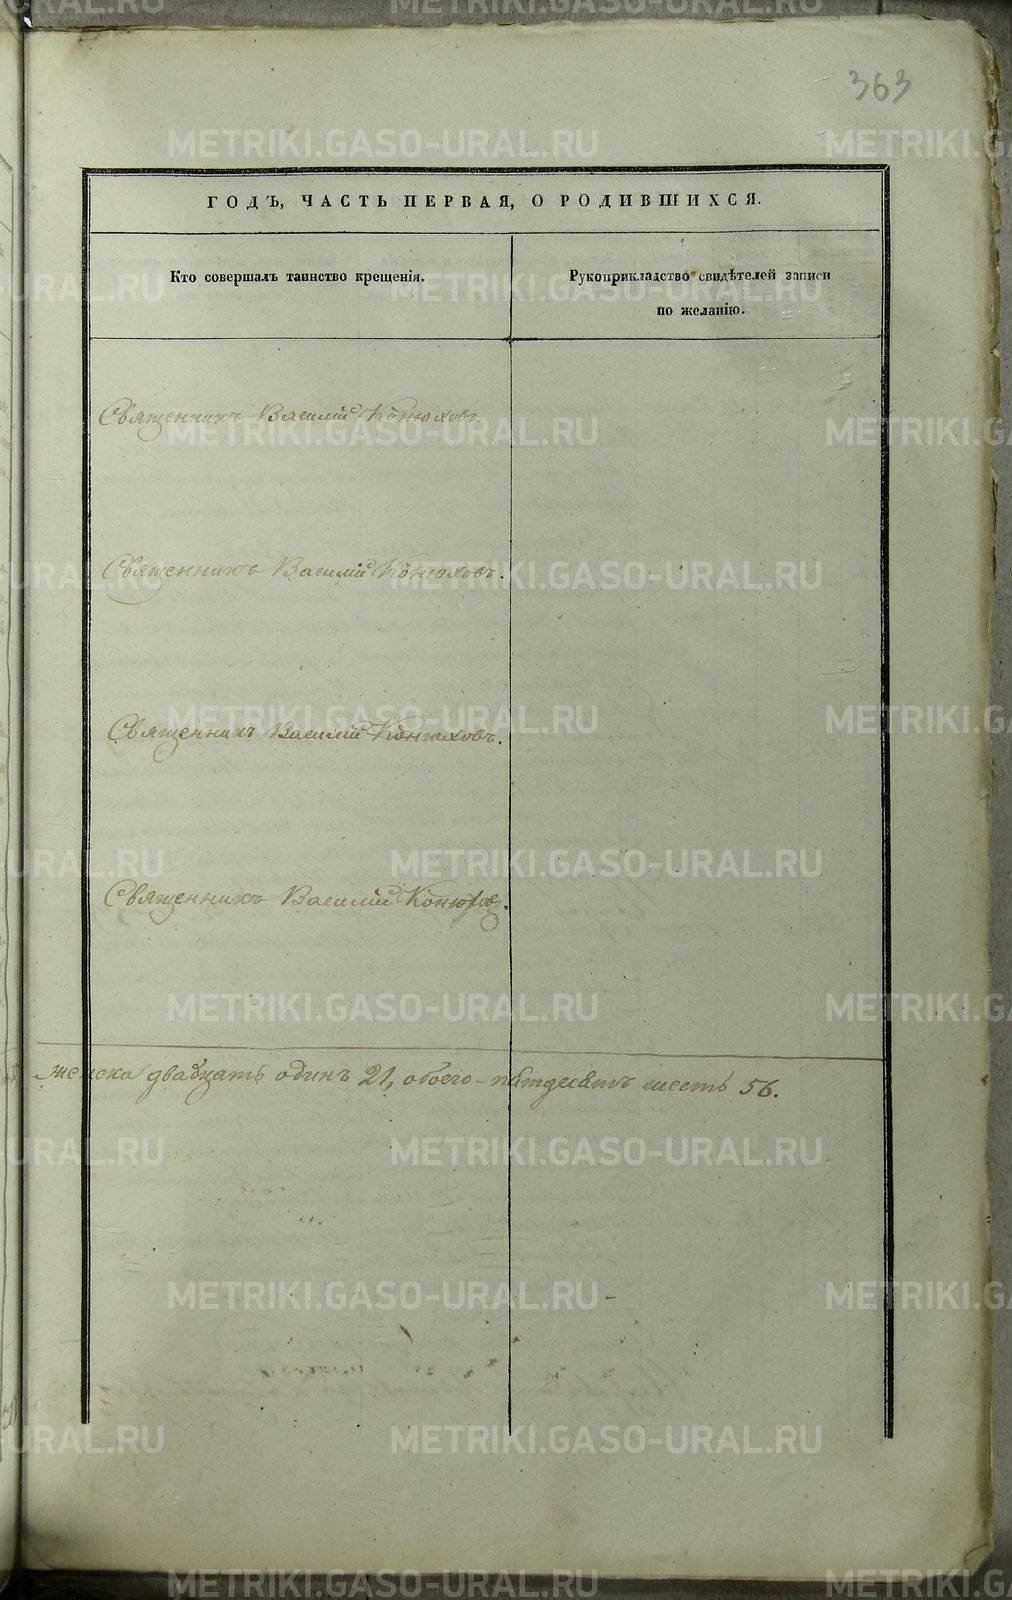 363
ГОДЪ, ЧАСТЬ ПЕРВАЯ, О РОДИВШИХСЯ.
Кто совершалъ таинство крещенія.
Рукоприкладство свидѣтелей записи
по желанію.
Священникъ Василій Конюховъ.
Священникъ Василій Конюховъ.
Священникъ Василій Конюховъ.
Священникъ Василій Конюховъ.
женска двадцать одинъ 21, обоего пятдесятъ шесть 56.
METRIKI.GASO-URAL.RU